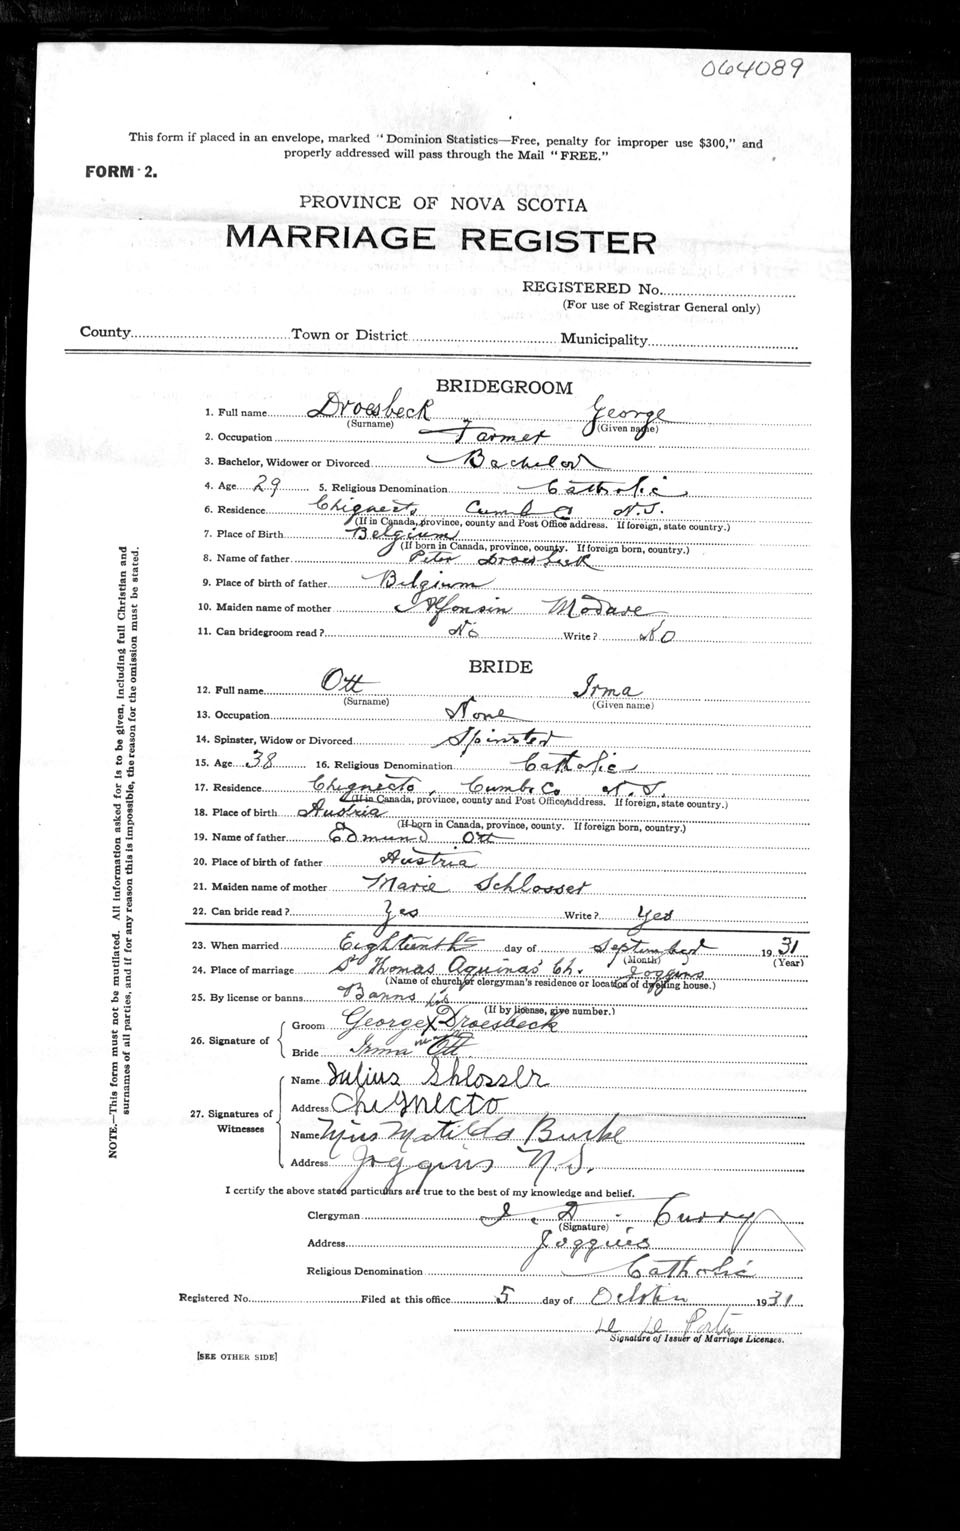 064089
This form if placed in an envelope, marked "Dominion Statistics—Free, penalty for improper use $300," and
properly addressed will pass through the Mail "FREE."
FORM 2.
PROVINCE OF NOVA SCOTIA
MARRIAGE REGISTER
REGISTERED No.
(For use of Registrar General only)
County Town or District Municipality
BRIDEGROOM
1. Full name Droesbeck George
(Surname) (Given name)
2. Occupation Farmer
3. Bachelor, Widower or Divorced Bachelor
4. Age 29 5. Religious Denomination Catholic
6. Residence Chignecto Cumb Co N.S.
(If in Canada, province, county and Post Office address. If foreign, state country.)
7. Place of Birth Belgium
(If born in Canada, province, county. If foreign born, country.)
8. Name of father Peter Droesbeek
9. Place of birth of father Belgium
10. Maiden name of mother Alfonsin Modave
11. Can bridegroom read? No Write? No
BRIDE
12. Full name Ott Irma
(Surname) (Given name)
13. Occupation None
14. Spinster, Widow or Divorced Spinster
15. Age 38 16. Religious Denomination Catholic
17. Residence Chignecto, Cumb. Co N.S.
(If in Canada, province, county and Post Office address. If foreign, state country.)
18. Place of birth Austria
(If born in Canada, province, county. If foreign born, country.)
19. Name of father Edmund Ott
20. Place of birth of father Austria
21. Maiden name of mother Marie Schlosser
22. Can bride read? Yes Write? Yes
23. When married Eighteenth day of September 1931
(Month) (Year)
24. Place of marriage St Thomas Aquinas' Ch. Joggins
(Name of church or clergyman's residence or location of dwelling house.)
25. By license or banns Banns
(If by license, give number.)
his
26. Signature of Groom George X Droesbeck
mark
Bride Irma Ott
27. Signatures of Witnesses
Name Julius Shlosser
Address Chignecto
Name Miss Matilda Burke
Address Joggins N.S.
I certify the above stated particulars are true to the best of my knowledge and belief.
Clergyman J. D. Curry
(Signature)
Address Joggins
Religious Denomination Catholic
Registered No. Filed at this office 5 day of October 1931
Porter
Signature of Issuer of Marriage Licenses.
[SEE OTHER SIDE]
NOTE.—This form must not be mutilated. All information asked for is to be given, including full Christian and
surnames of all parties, and if for any reason this is impossible, the reason for the omission must be stated.